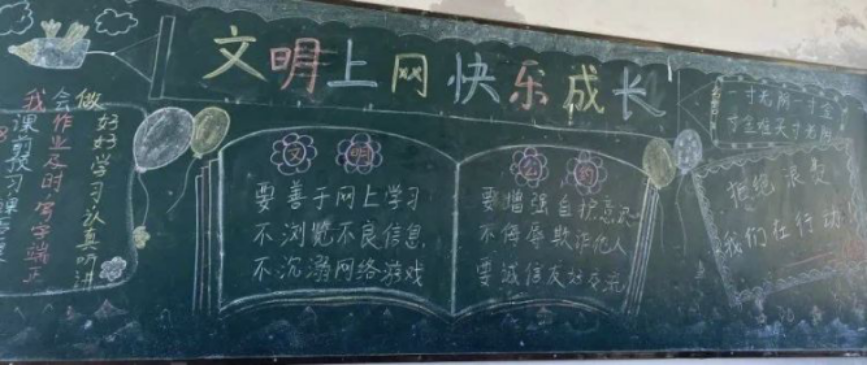 文明上网快乐成长
做好好学习认真听讲
会作业及时写字端正
我课前预习课
文明
要善于网上学习
不浏览不良信息
不沉溺网络游戏
公约
要增强自护意识
不侮辱欺诈他人
要诚信友好交流
一寸光阴一寸金
寸金难买寸光阴
拒绝浪费
我们在行动